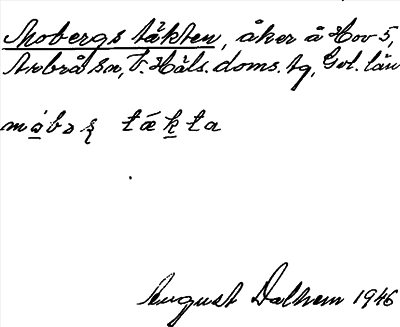 Mobergs täkten, åker å Hov 5,
Arbrå sn, V. Häls. doms. tg, Gvl. län
mọbəȿ tǽḳta
August Dalhem 1946